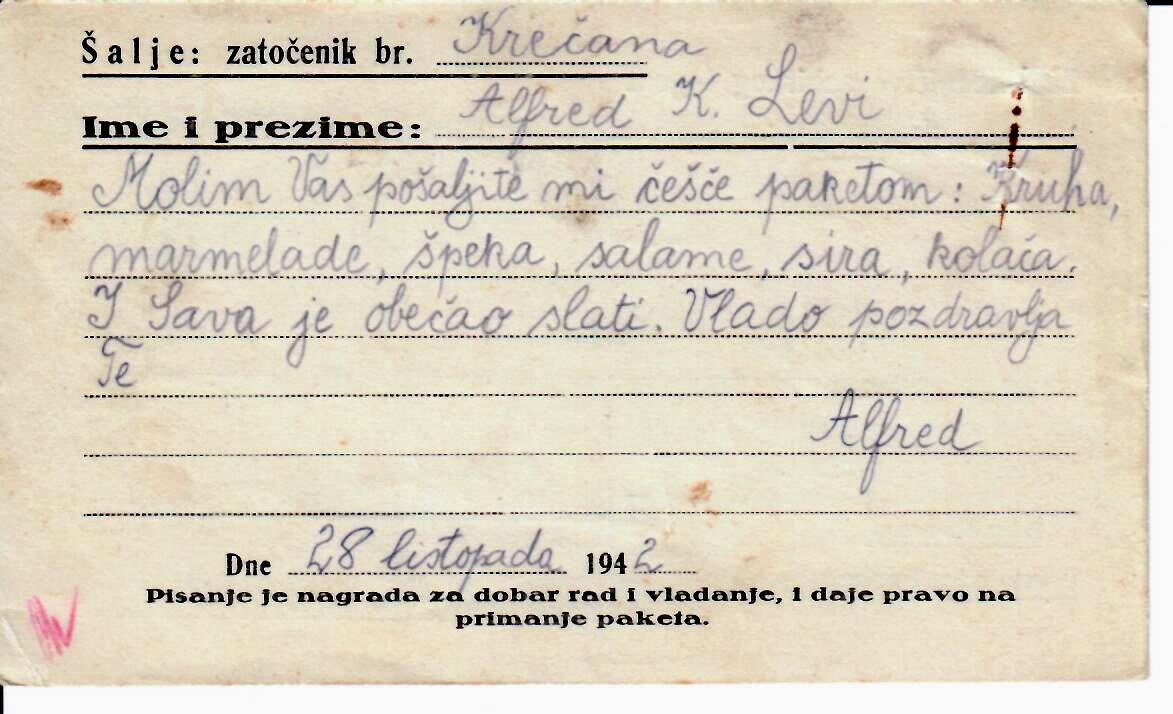 Šalje: zatočenik br. Krečana
Ime i prezime: Alfred K. Levi
Molim Vas pošaljite mi češče paketom: Kruha,
marmelade, špeka, salame, sira, kolača.
I Sava je obečao slati. Vlado pozdravlja
Te
Alfred
Dne 28 listopada 1942
Pisanje je nagrada za dobar rad i vladanje, i daje pravo na
primanje paketa.